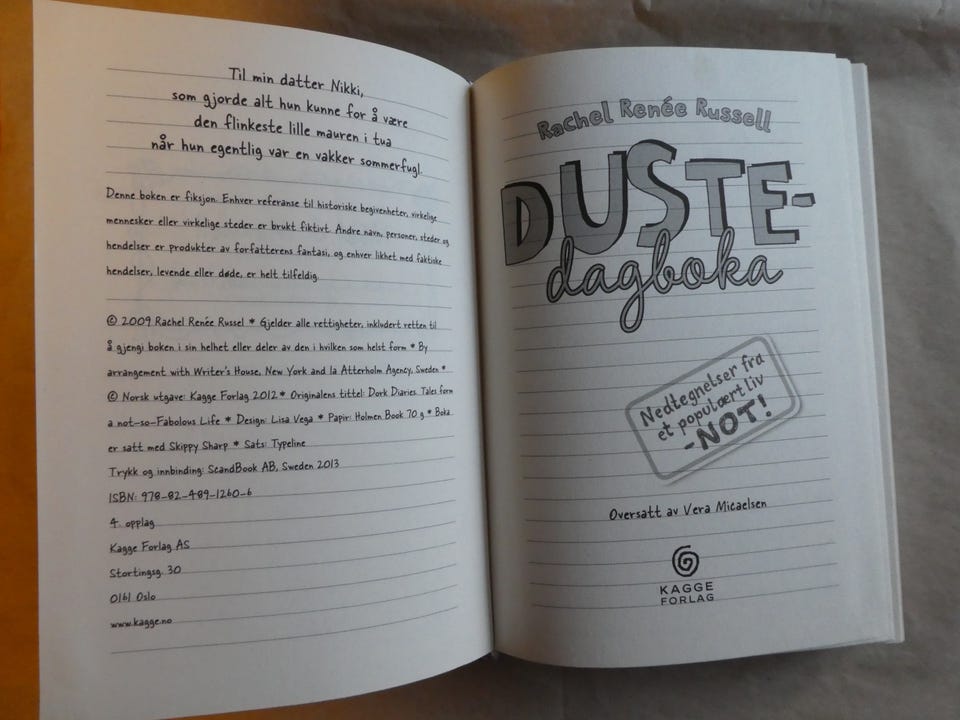 Til min datter Nikki,
som gjorde alt hun kunne for å være
den flinkeste lille mauren i tua
når hun egentlig var en vakker sommerfugl.
Denne boken er fiksjon. Enhver referanse til historiske begivenheter, virkelige
mennesker eller virkelige steder er brukt fiktivt. Andre navn, personer, steder og
hendelser er produkter av forfatterens fantasi, og enhver likhet med faktiske
hendelser, levende eller døde, er helt tilfeldig.
© 2009 Rachel Renée Russel * Gjelder alle rettigheter, inkludert retten til
å gjengi boken i sin helhet eller deler av den i hvilken som helst form * By
arrangement with Writer's House, New York and Ia Atterholm Agency, Sweden *
© Norsk utgave: Kagge Forlag 2012 * Originalens tittel: Dork Diaries. Tales form
a not-so-Fabolous Life * Design: Lisa Vega * Papir: Holmen Book 70 g * Boka
er satt med Skippy Sharp * Sats: Typeline
Trykk og innbinding: ScandBook AB, Sweden 2013
ISBN: 978-82-489-1260-6
4. opplag
Kagge Forlag AS
Stortingsg. 30
0161 Oslo
www.kagge.no
Rachel Renée Russell
DUSTE-
dagboka
Nedtegnelser fra
et populært liv
-NOT!
Oversatt av Vera Micaelsen
KAGGE
FORLAG